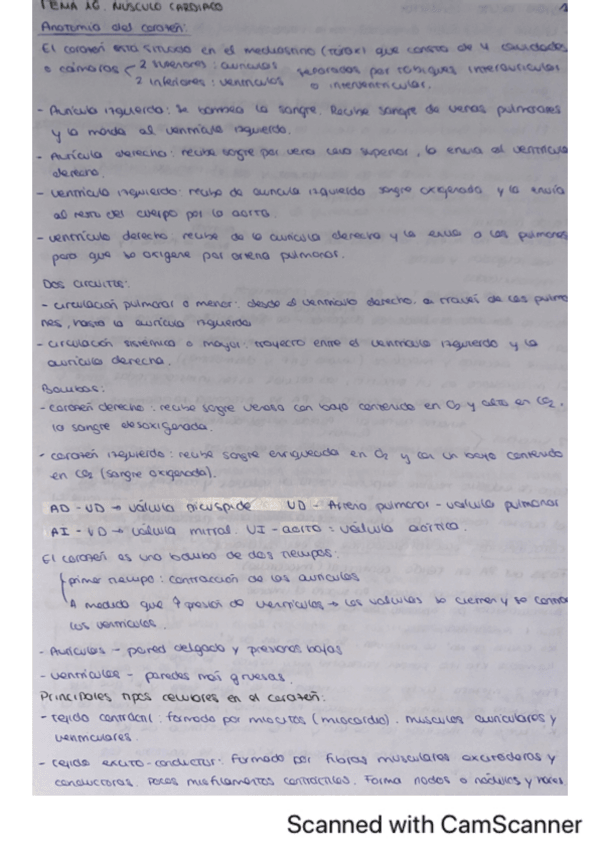 TEMA 16. MÚSCULO CARDIACO 1
Anatomia del corazón:
El corazón está situado en el mediastino (tórax) que consta de 4 cavidades
o cámaras 2 superiores: aurículas separadas por tabiques interauricular
2 inferiores: ventrículos o interventricular.
- Aurícula izquierda: se bombea la sangre. Recibe sangre de venas pulmonares
y la manda al ventrículo izquierdo.
- Aurícula derecha: recibe sangre por vena cava superior, la envia al ventrículo
derecho.
- ventrículo izquierdo: recibe de aurícula izquierda sangre oxigenada y la envía
al resto del cuerpo por la aorta.
- ventrículo derecho: recibe de la aurícula derecha y la envia a los pulmones
para que se oxigene por arteria pulmonar.
Dos circuitos:
- circulación pulmonar o menor: desde el ventrículo derecho, a través de los pulmo
nes, hasta la aurícula izquierda
- circulación sistémica o mayor: trayecto entre el ventrículo izquierdo y la
aurícula derecha.
Bombas:
- corazón derecho: recibe sangre venosa con bajo contenido en O2 y alto en CO2.
la sangre desoxigenada.
- corazón izquierdo: recibe sangre enriquecida en O2 y con un bajo contenido
en CO2 (sangre oxigenada).
AD - VD → válvula tricuspide VD - Arteria pulmonar - valvula pulmonar
AI - VD → válvula mitral VI - aorta: válvula aórtica.
El corazón es una bomba de dos tiempos:
primer tiempo: contracción de las aurículas
A medida que ↑ presión de ventrículos → las válvulas se cierran y se contrae
los ventrículos.
- Aurículas - pared delgada y presiones bajas
- ventrículos - paredes más gruesas.
Principales tipos celulares en el corazón:
- tejido contráctil: formado por miocitos (miocardio). musculos auriculares y
ventriculares.
- tejido excito-conductor: formado por fibras musculares excitadoras y
conductoras. Pocos miofilamentos contráctiles. Forma nodos o nódulos y haces
Scanned with CamScanner